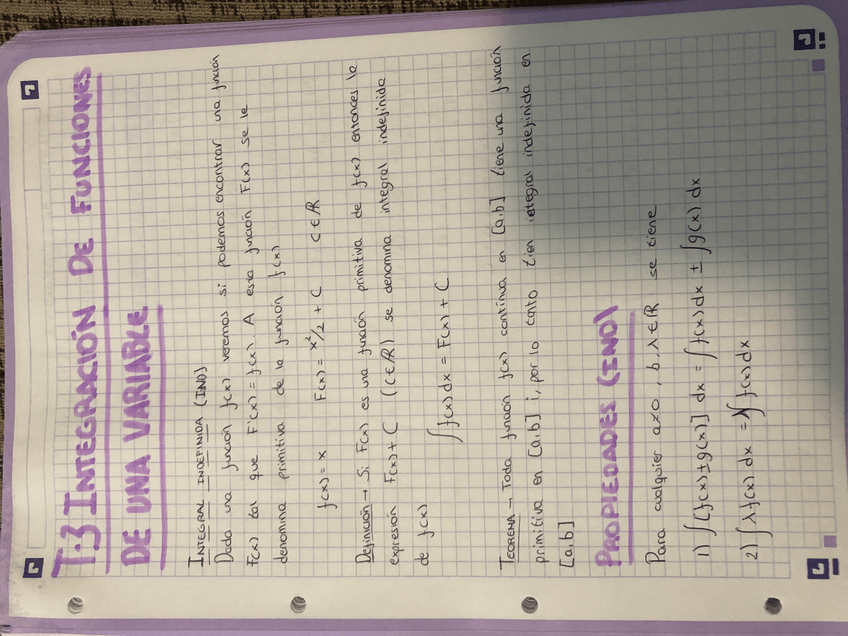 T.3 INTEGRACIÓN DE FUNCIONES
DE UNA VARIABLE
INTEGRAL INDEFINIDA (IND)
Dada una función f(x) veremos si podemos encontrar una función
F(x) tal que F'(x) = f(x). A esta función F(x) se le
denomina primitiva de la función f(x)
f(x) = x F(x) = x²/2 + C C ∈ ℝ
Definición → Si F(x) es una función primitiva de f(x) entonces la
expresión F(x) + C (C ∈ ℝ) se denomina integral indefinida
de f(x)
∫ f(x) dx = F(x) + C
TEOREMA → Toda función f(x) continua en [a,b] tiene una función
primitiva en [a,b] i, por lo tanto tien integral indefinida en
[a,b]
PROPIEDADES (IND)
Para cualquier a≠0, b, λ ∈ ℝ se tiene
1) ∫ [f(x) ± g(x)] dx = ∫ f(x) dx ± ∫ g(x) dx
2) ∫ λ f(x) dx = λ ∫ f(x) dx